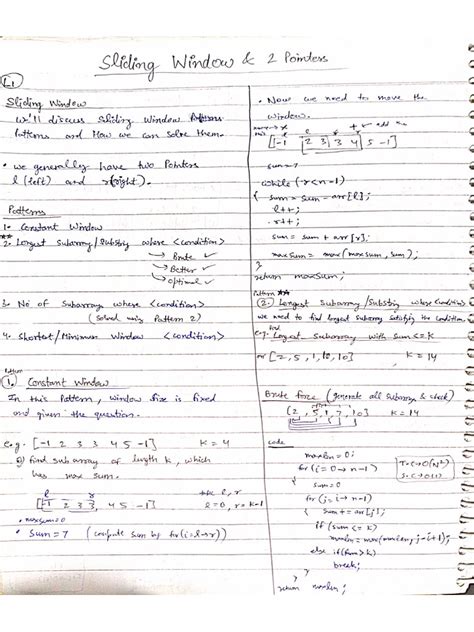 Sliding Window & 2 Pointers
L1
Sliding Window
We'll discuss Sliding Window
Patterns and How we can solve them.
• We generally have two Pointers
l (left) and r(right).
Patterns
1. Constant Window
2. Longest Subarray/Substring where <condition>
→ Brute
→ Better
→ Optimal
3. No of Subarrays where <condition>
(Solved using Pattern 2)
4. Shortest/Minimum Window <condition>
Pattern
1. Constant Window
In this Pattern, window size is fixed
and given the question.
e.g. [-1 2 3 3 4 5 -1] K = 4
Q) find subarray of length k, which
has max sum.
l r
[-1 2 3 3, 4 5 -1] l, r
l = 0, r = k-1
• maxsum = 0
• Sum = 7 (compute sum by for(i = l → r))
• Now we need to move the
window.
l r
[-1 2 3 3 4 5 -1]
sum = 7
while (r < n-1)
{ sum = sum - arr[l];
l++;
r++;
sum = sum + arr[r];
maxSum = max(maxsum, sum);
}
return maxSum;
Pattern
2. Longest Subarray/Substring where <condition>
we need to find longest subarray satisfying the condition.
e.g. Longest Subarray with sum <= K
arr [2, 5, 1, 10, 10] K = 14
Brute force (generate all subarrays & check)
[2, 5, 1, 7, 10] K = 14
code
maxlen = 0;
for (i = 0 → n-1)
{
Sum = 0
for (j = i → n-1)
{ Sum += arr[j];
if (sum <= k)
maxlen = max(maxlen, j-i+1);
else if (sum > k)
break;
}
}
return maxlen;
T.C → O(N²)
S.C → O(1)